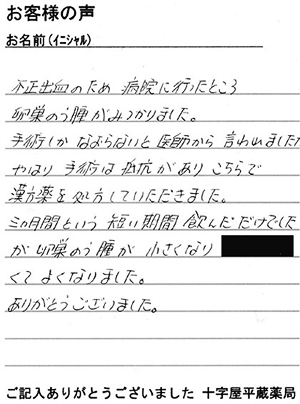 お客様の声
お名前(イニシャル)
不正出血のため 病院に行ったところ
卵巣のう腫がみつかりました。
手術しか なおらないと 医師から 言われました
やはり 手術は 抵抗があり こちらで
漢方薬を処方していただきました。
三ヵ月間という 短い期間 飲んだだけでした
が 卵巣のう腫が 小さくなり
くて よくなりました。
ありがとうございました。
ご記入ありがとうございました 十字屋平蔵薬局